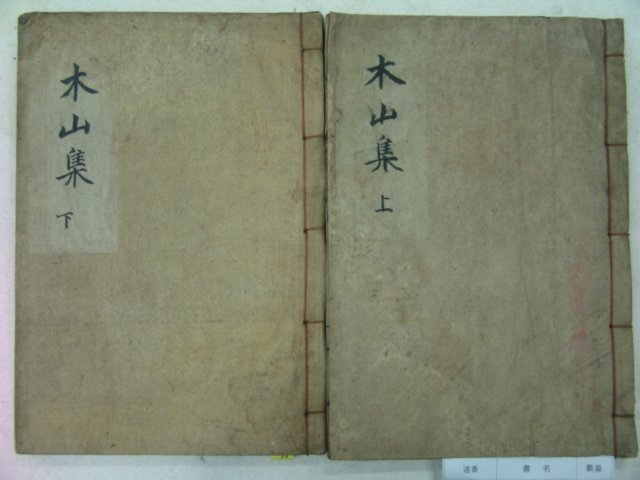 木山集
上
木山集
下
連番 書名 數量